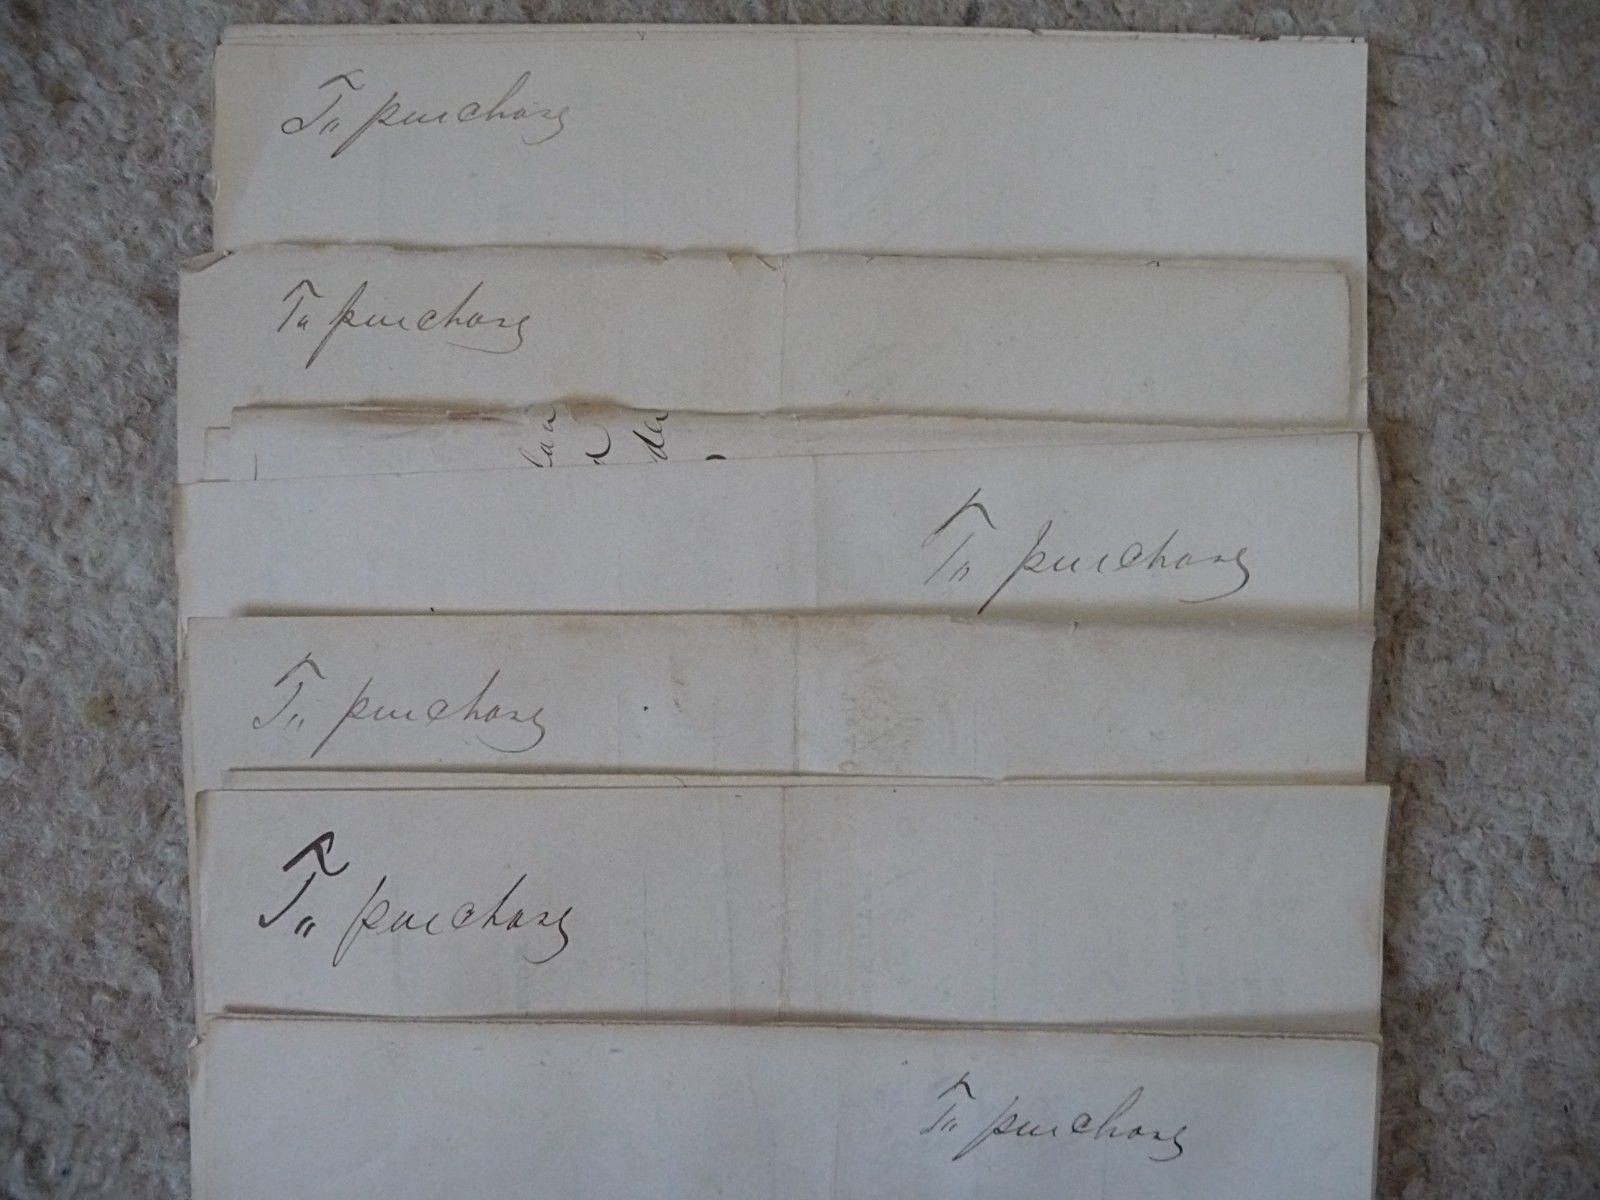 To purchase
To purchase
To purchase
To purchase
To purchase
To purchase